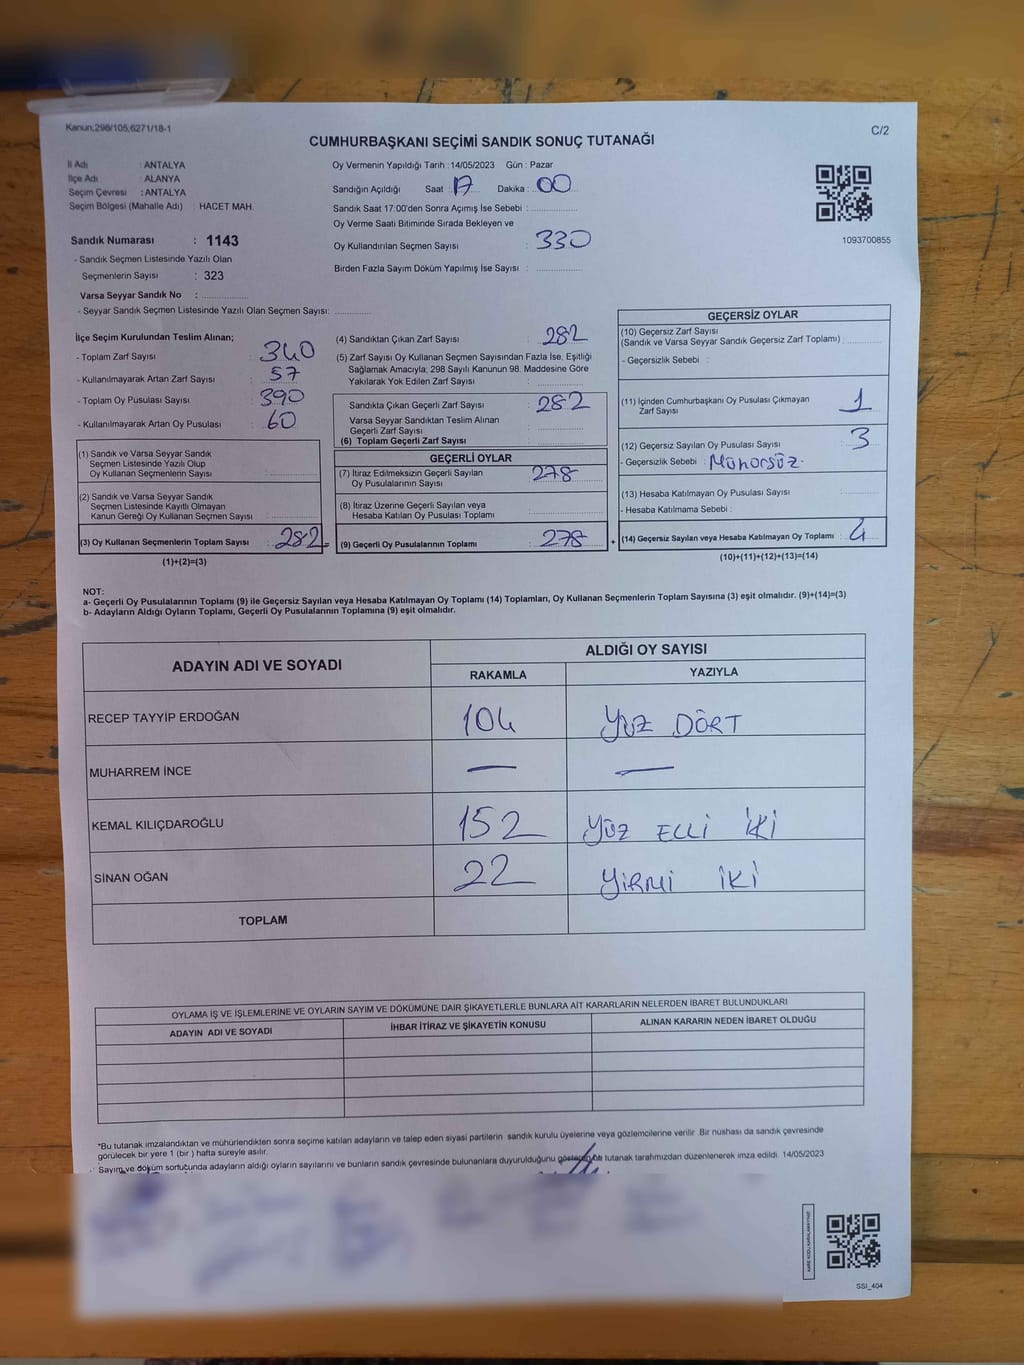 Kanun;298/105,6271/18-1
C/2
CUMHURBAŞKANI SEÇİMİ SANDIK SONUÇ TUTANAĞI
İl Adı : ANTALYA
İlçe Adı : ALANYA
Seçim Çevresi : ANTALYA
Seçim Bölgesi (Mahalle Adı) : HACET MAH.
Sandık Numarası : 1143
- Sandık Seçmen Listesinde Yazılı Olan
Seçmenlerin Sayısı : 323
Varsa Seyyar Sandık No :
- Seyyar Sandık Seçmen Listesinde Yazılı Olan Seçmen Sayısı:
Oy Vermenin Yapıldığı Tarih : 14/05/2023 Gün : Pazar
Sandığın Açıldığı Saat : 17 Dakika : 00
Sandık Saat 17:00'den Sonra Açımış İse Sebebi :
Oy Verme Saati Bitiminde Sırada Bekleyen ve
Oy Kullandırılan Seçmen Sayısı : 330
Birden Fazla Sayım Döküm Yapılmış İse Sayısı :
1093700855
İlçe Seçim Kurulundan Teslim Alınan;
- Toplam Zarf Sayısı : 340
- Kullanılmayarak Artan Zarf Sayısı : 57
- Toplam Oy Pusulası Sayısı : 390
- Kullanılmayarak Artan Oy Pusulası : 60
(1) Sandık ve Varsa Seyyar Sandık
Seçmen Listesinde Yazılı Olup
Oy Kullanan Seçmenlerin Sayısı
(2) Sandık ve Varsa Seyyar Sandık
Seçmen Listesinde Kayıtlı Olmayan
Kanun Gereği Oy Kullanan Seçmen Sayısı :
(3) Oy Kullanan Seçmenlerin Toplam Sayısı : 282 =
(1)+(2)=(3)
(4) Sandıktan Çıkan Zarf Sayısı : 282
(5) Zarf Sayısı Oy Kullanan Seçmen Sayısından Fazla İse, Eşitliği
Sağlamak Amacıyla; 298 Sayılı Kanunun 98. Maddesine Göre
Yakılarak Yok Edilen Zarf Sayısı :
Sandıkta Çıkan Geçerli Zarf Sayısı : 282
Varsa Seyyar Sandıktan Teslim Alınan
Geçerli Zarf Sayısı :
(6) Toplam Geçerli Zarf Sayısı :
GEÇERLİ OYLAR
(7) İtiraz Edilmeksizin Geçerli Sayılan
Oy Pusulalarının Sayısı 278
(8) İtiraz Üzerine Geçerli Sayılan veya
Hesaba Katılan Oy Pusulası Toplamı
(9) Geçerli Oy Pusulalarının Toplamı : 278 +
GEÇERSİZ OYLAR
(10) Geçersiz Zarf Sayısı
(Sandık ve Varsa Seyyar Sandık Geçersiz Zarf Toplamı) :
- Geçersizlik Sebebi :
(11) İçinden Cumhurbaşkanı Oy Pusulası Çıkmayan
Zarf Sayısı 1
(12) Geçersiz Sayılan Oy Pusulası Sayısı : 3
- Geçersizlik Sebebi : Mühörsüz.
(13) Hesaba Katılmayan Oy Pusulası Sayısı :
- Hesaba Katılmama Sebebi :
(14) Geçersiz Sayılan veya Hesaba Katılmayan Oy Toplamı : 4
(10)+(11)+(12)+(13)=(14)
NOT:
a- Geçerli Oy Pusulalarının Toplamı (9) ile Geçersiz Sayılan veya Hesaba Katılmayan Oy Toplamı (14) Toplamları, Oy Kullanan Seçmenlerin Toplam Sayısına (3) eşit olmalıdır. (9)+(14)=(3)
b- Adayların Aldığı Oyların Toplamı, Geçerli Oy Pusulalarının Toplamına (9) eşit olmalıdır.
ADAYIN ADI VE SOYADI ALDIĞI OY SAYISI
RAKAMLA YAZIYLA
RECEP TAYYİP ERDOĞAN 104 YÜZ DÖRT
MUHARREM İNCE — —
KEMAL KILIÇDAROĞLU 152 YÜZ ELLİ İKİ
SİNAN OĞAN 22 YİRMİ İKİ
TOPLAM
OYLAMA İŞ VE İŞLEMLERİNE VE OYLARIN SAYIM VE DÖKÜMÜNE DAİR ŞİKAYETLERLE BUNLARA AİT KARARLARIN NELERDEN İBARET BULUNDUKLARI
ADAYIN ADI VE SOYADI İHBAR İTİRAZ VE ŞİKAYETİN KONUSU ALINAN KARARIN NEDEN İBARET OLDUĞU
*Bu tutanak imzalandıktan ve mühürlendikten sonra seçime katılan adayların ve talep eden siyasi partilerin sandık kurulu üyelerine veya gözlemcilerine verilir. Bir nüshası da sandık çevresinde
görülecek bir yere 1 (bir) hafta süreyle asılır.
Sayım ve döküm sonucunda adayların aldığı oyların sayılarını ve bunların sandık çevresinde bulunanlara duyurulduğunu gösteren bu tutanak tarafımızdan düzenlenerek imza edildi. 14/05/2023
KARE KODU KARALAMAYINIZ!
SSİ_404